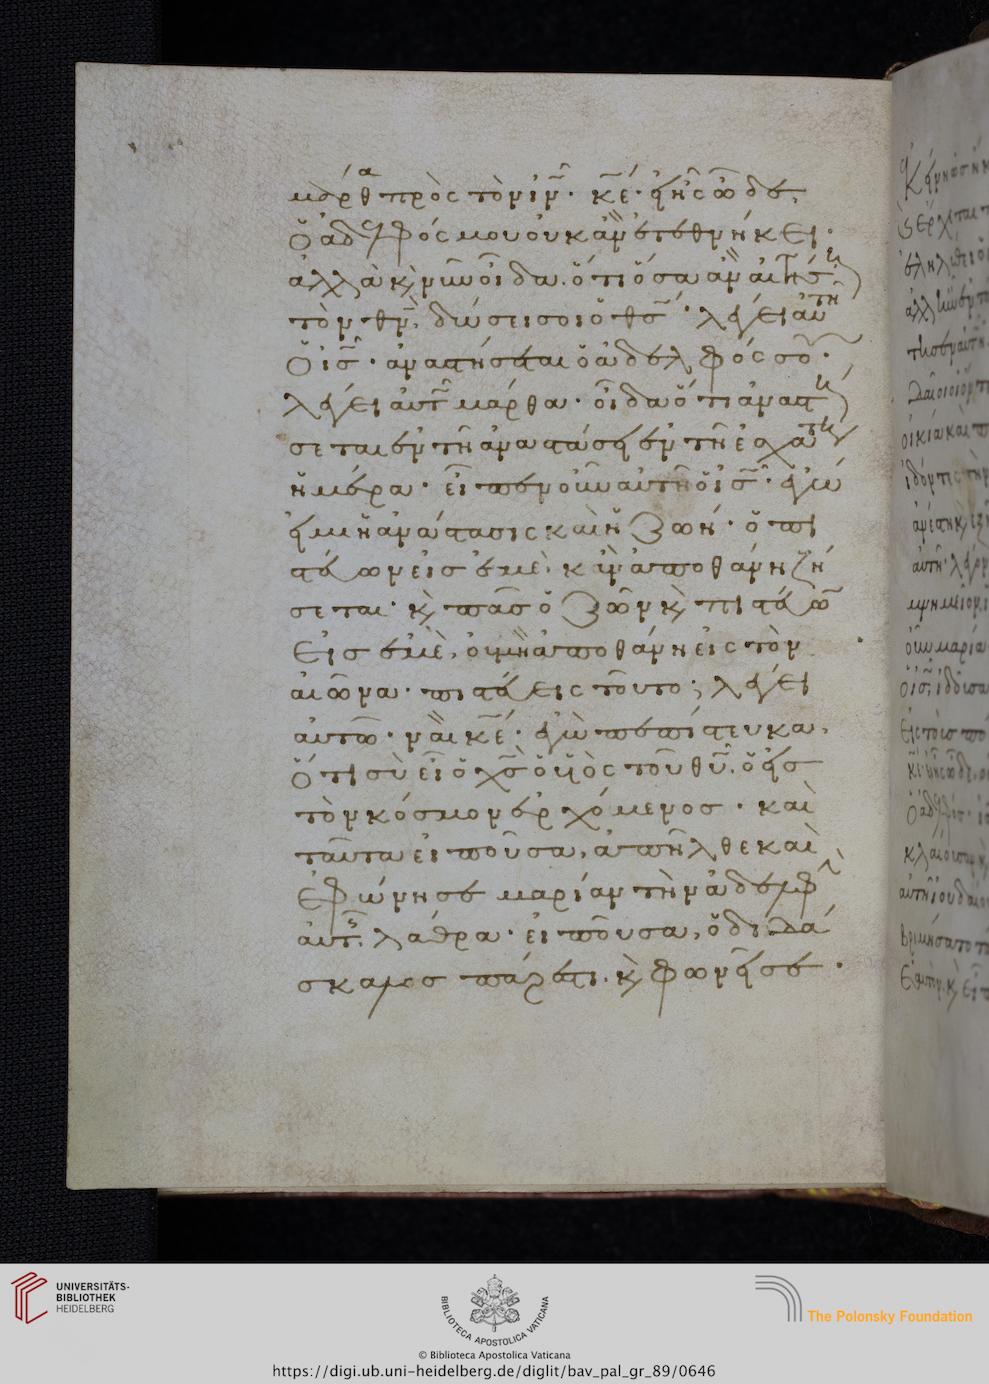 μάρθα πρὸς τὸν ιν̄· κε̄· εἰ ἦς ὧδε,
ὁ ἀδελφός μου οὐκ ἂν ἐτεθνήκει·
ἀλλὰ κ̀ νῦν οἶδα· ὅτι ὅσα ἂν αἰτήσῃ
τὸν θν̄, δώσει σοι ὁ θσ̄· λέγει αὐτῆ
ὁ ισ̄· ἀναστήσεται ὁ ἀδελφός σου·
λέγει αὐτῶ μάρθα· οἶδα ὅτι ἀναστή
σεται ἐν τῆ ἀναστάσει ἐν τῆ ἐσχάτη
ἡμέρα· εἶπεν οὖν αὐτῆ ὁ ισ̄· ἐγώ
εἰμι ἡ ἀνάστασις καὶ ἡ ζωή· ὁ πι
στεύων εἰσ ἐμὲ, κἂν ἀποθάνη ζή
σεται· κ̀ πᾶσ ὁ ζῶν κ̀ πιστεύων
εἰσ ἐμὲ, οὐ μὴ ἀποθάνη εἰς τὸν
αἰῶνα· πιστεύεις τοῦτο; λέγει
αὐτῶ· ναὶ κε̄· ἐγὼ πεπίστευκα,
ὅτι σὺ εἶ ὁ χσ̄ ὁ υἱὸς τοῦ θῡ, ὁ εἰσ
τὸν κόσμον ἐρχόμενοσ· καὶ
ταῦτα εἰποῦσα, ἀπῆλθε καὶ
ἐφώνησε μαρίαν τὴν ἀδελφὴν
αὐτῆς λάθρα· εἰποῦσα, ὁ διδά
σκαλοσ πάρεστι, κ̀ φωνεῖ σε·
UNIVERSITÄTS-
BIBLIOTHEK
HEIDELBERG
BIBLIOTECA APOSTOLICA VATICANA
© Biblioteca Apostolica Vaticana
The Polonsky Foundation
https://digi.ub.uni-heidelberg.de/diglit/bav_pal_gr_89/0646